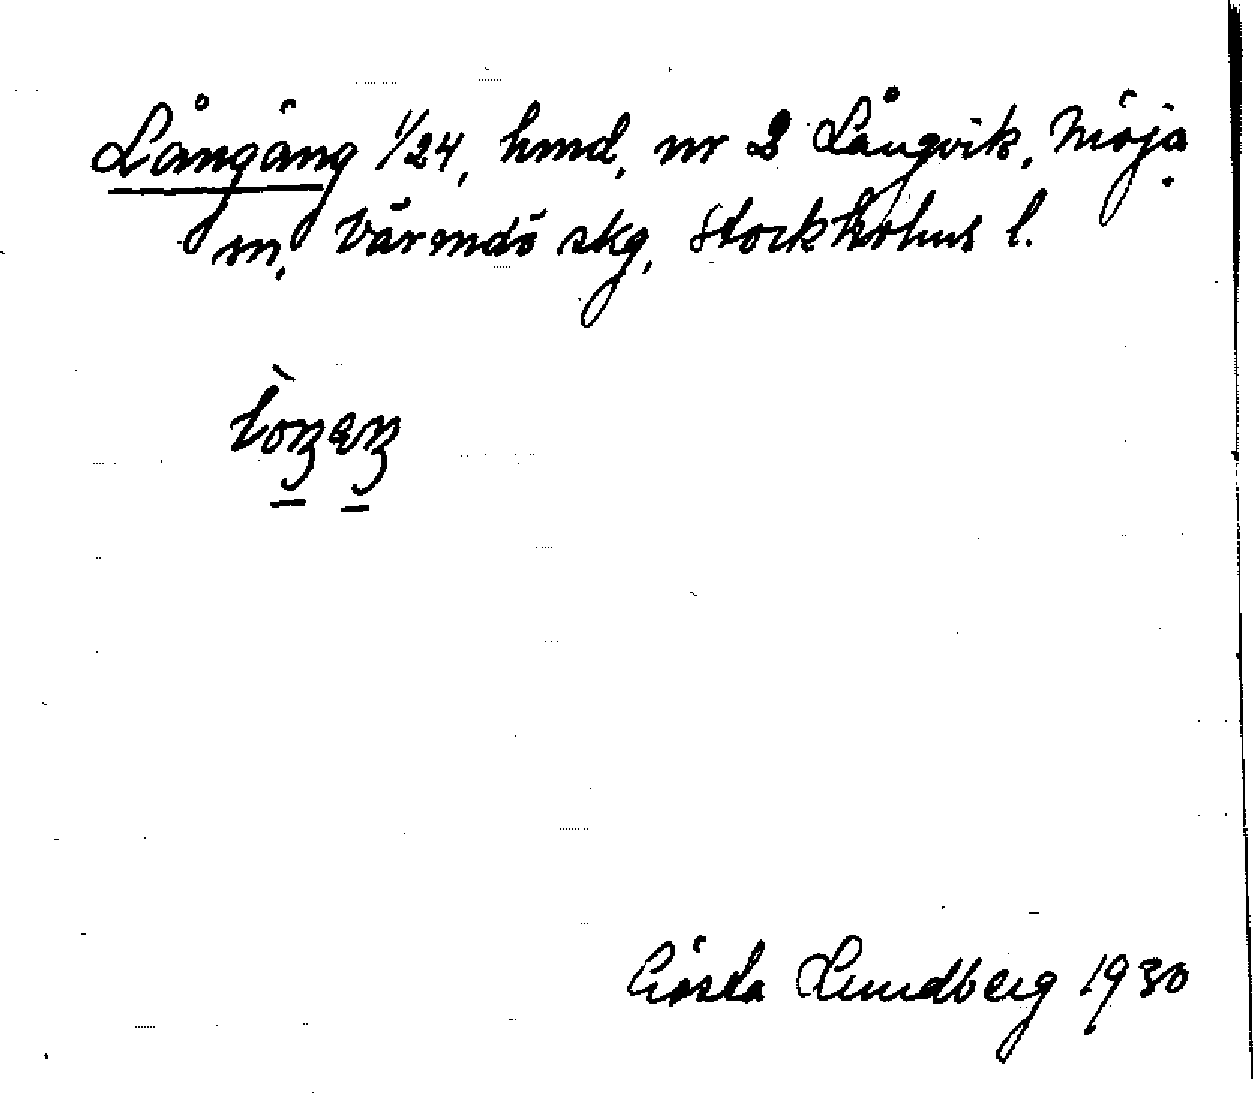 Långäng 1/24, hmd, nr 2 Långvik, Möja
m, Värmdö skg, Stockholms l.
Gösta Lundberg 1930